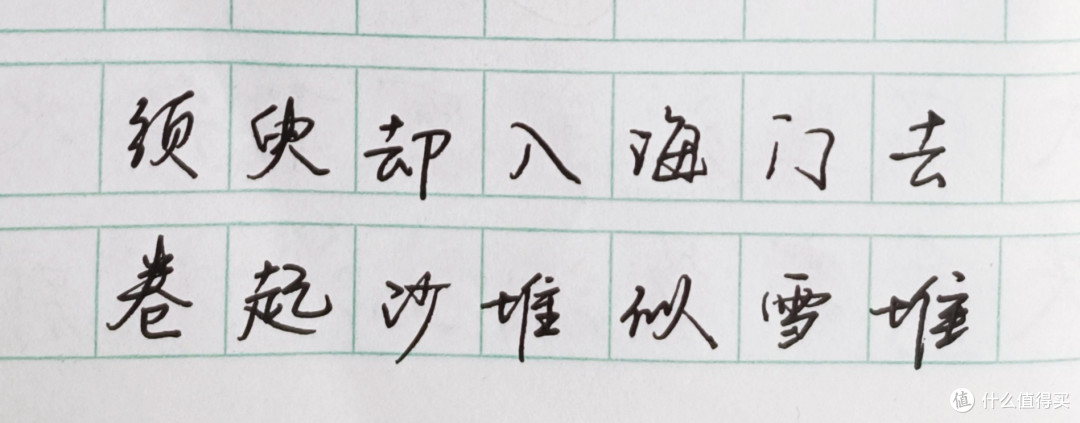 须臾却入海门去
卷起沙堆似雪堆
值 什么值得买